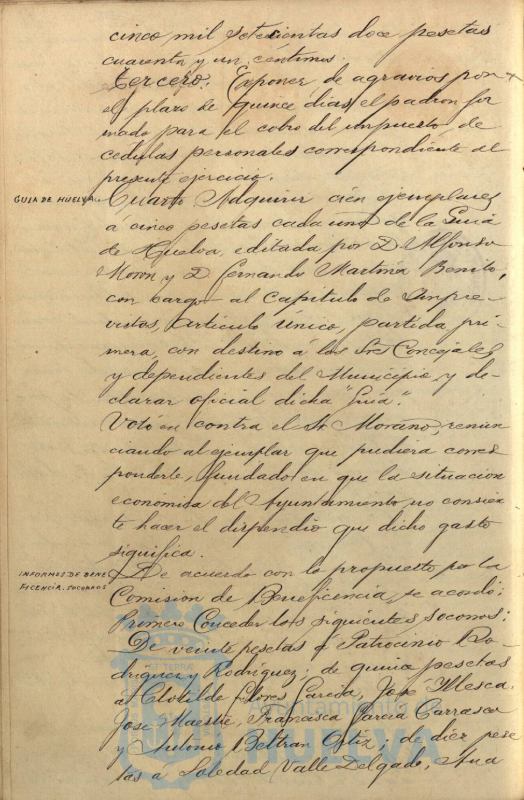 cinco mil setecientas doce pesetas
cuarenta y un céntimos.
Tercero. Exponer de agravios por
el plazo de quince dias, el padron for
mado para el cobro del impuesto de
cédulas personales correspondiente al
presente ejercicio.
GUIA DE HUELVA
Cuarto Adquirir cien ejemplares
á cinco pesetas cada uno de la Guia
de Huelva, editada por D. Alfonso
Moron y D. Fernando Martina Benito,
con cargo al capitulo de Impre-
vistos, artículo único, partida pri-
mera, con destino á los Sres Concejales
y dependientes del Municipio y de-
clarar oficial dicha "Guia".
Votó en contra el Sr Moraño, renun
ciando al ejemplar que pudiera corres
ponderle, fundado en que la situación
económica del Ayuntamiento no consien
te hacer el dispendio que dicho gasto
significa.
INFORMES DE BENE
FICENCIA. SOCORROS
De acuerdo con lo propuesto por la
Comision de Beneficencia, se acordó:
Primero Conceder los siguientes socorros:
De veinte pesetas á Patrocinio Ro-
driguez y Rodriguez; de quince pesetas
a Clotilde Flores Garcia, José Mesca.
José Maestre, Francisca Garcia Carrasco
y Antonio Beltran Ortiz; de diez pese
tas a Soledad Valle Delgado, Ana
Ayuntamiento de
HUELVA